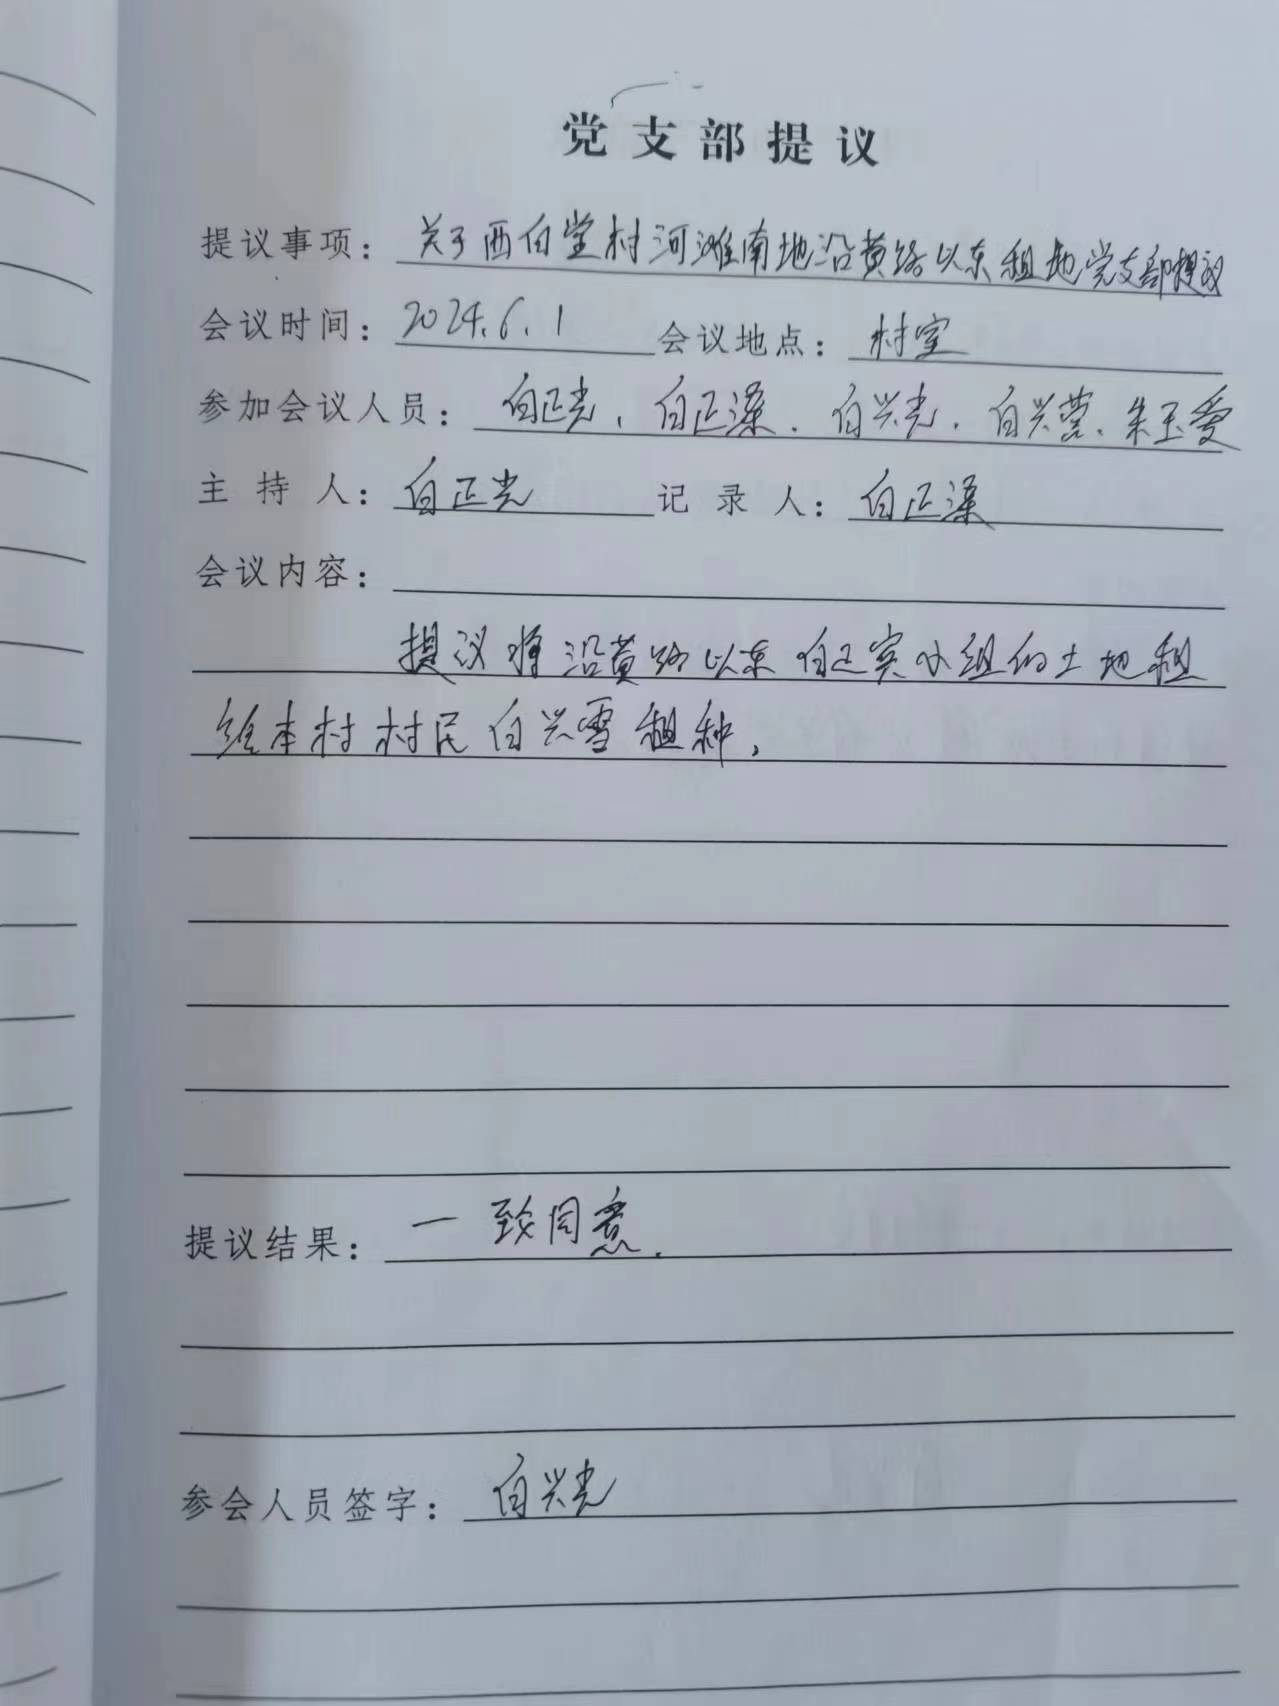 党支部提议
提议事项：关于西白堂村河滩南地沿黄路以东租地党支部提议
会议时间：2024.6.1 会议地点：村室
参加会议人员：白正光、白正溪、白兴光、白兴营、朱玉爱
主持人：白正光 记录人：白正溪
会议内容：
提议将沿黄路以东白正宾小组的土地租
给本村村民白兴雪租种，
提议结果：一致同意.
参会人员签字：白兴光